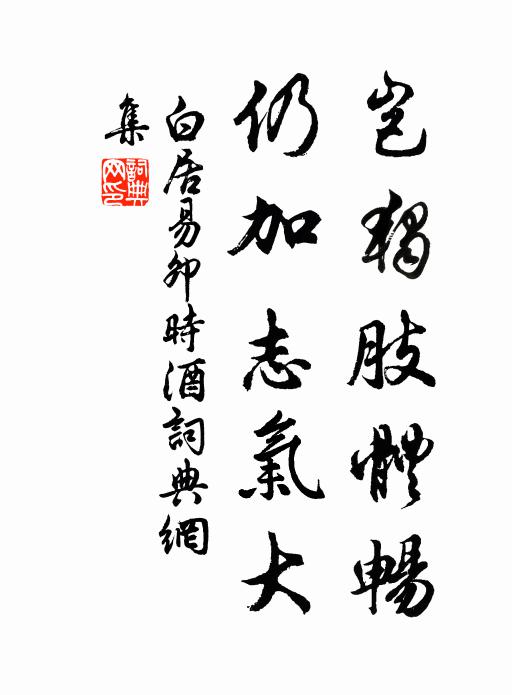 豈獨肢體暢
仍加志氣大
白居易卯時酒詞典網
集
詞典
網印